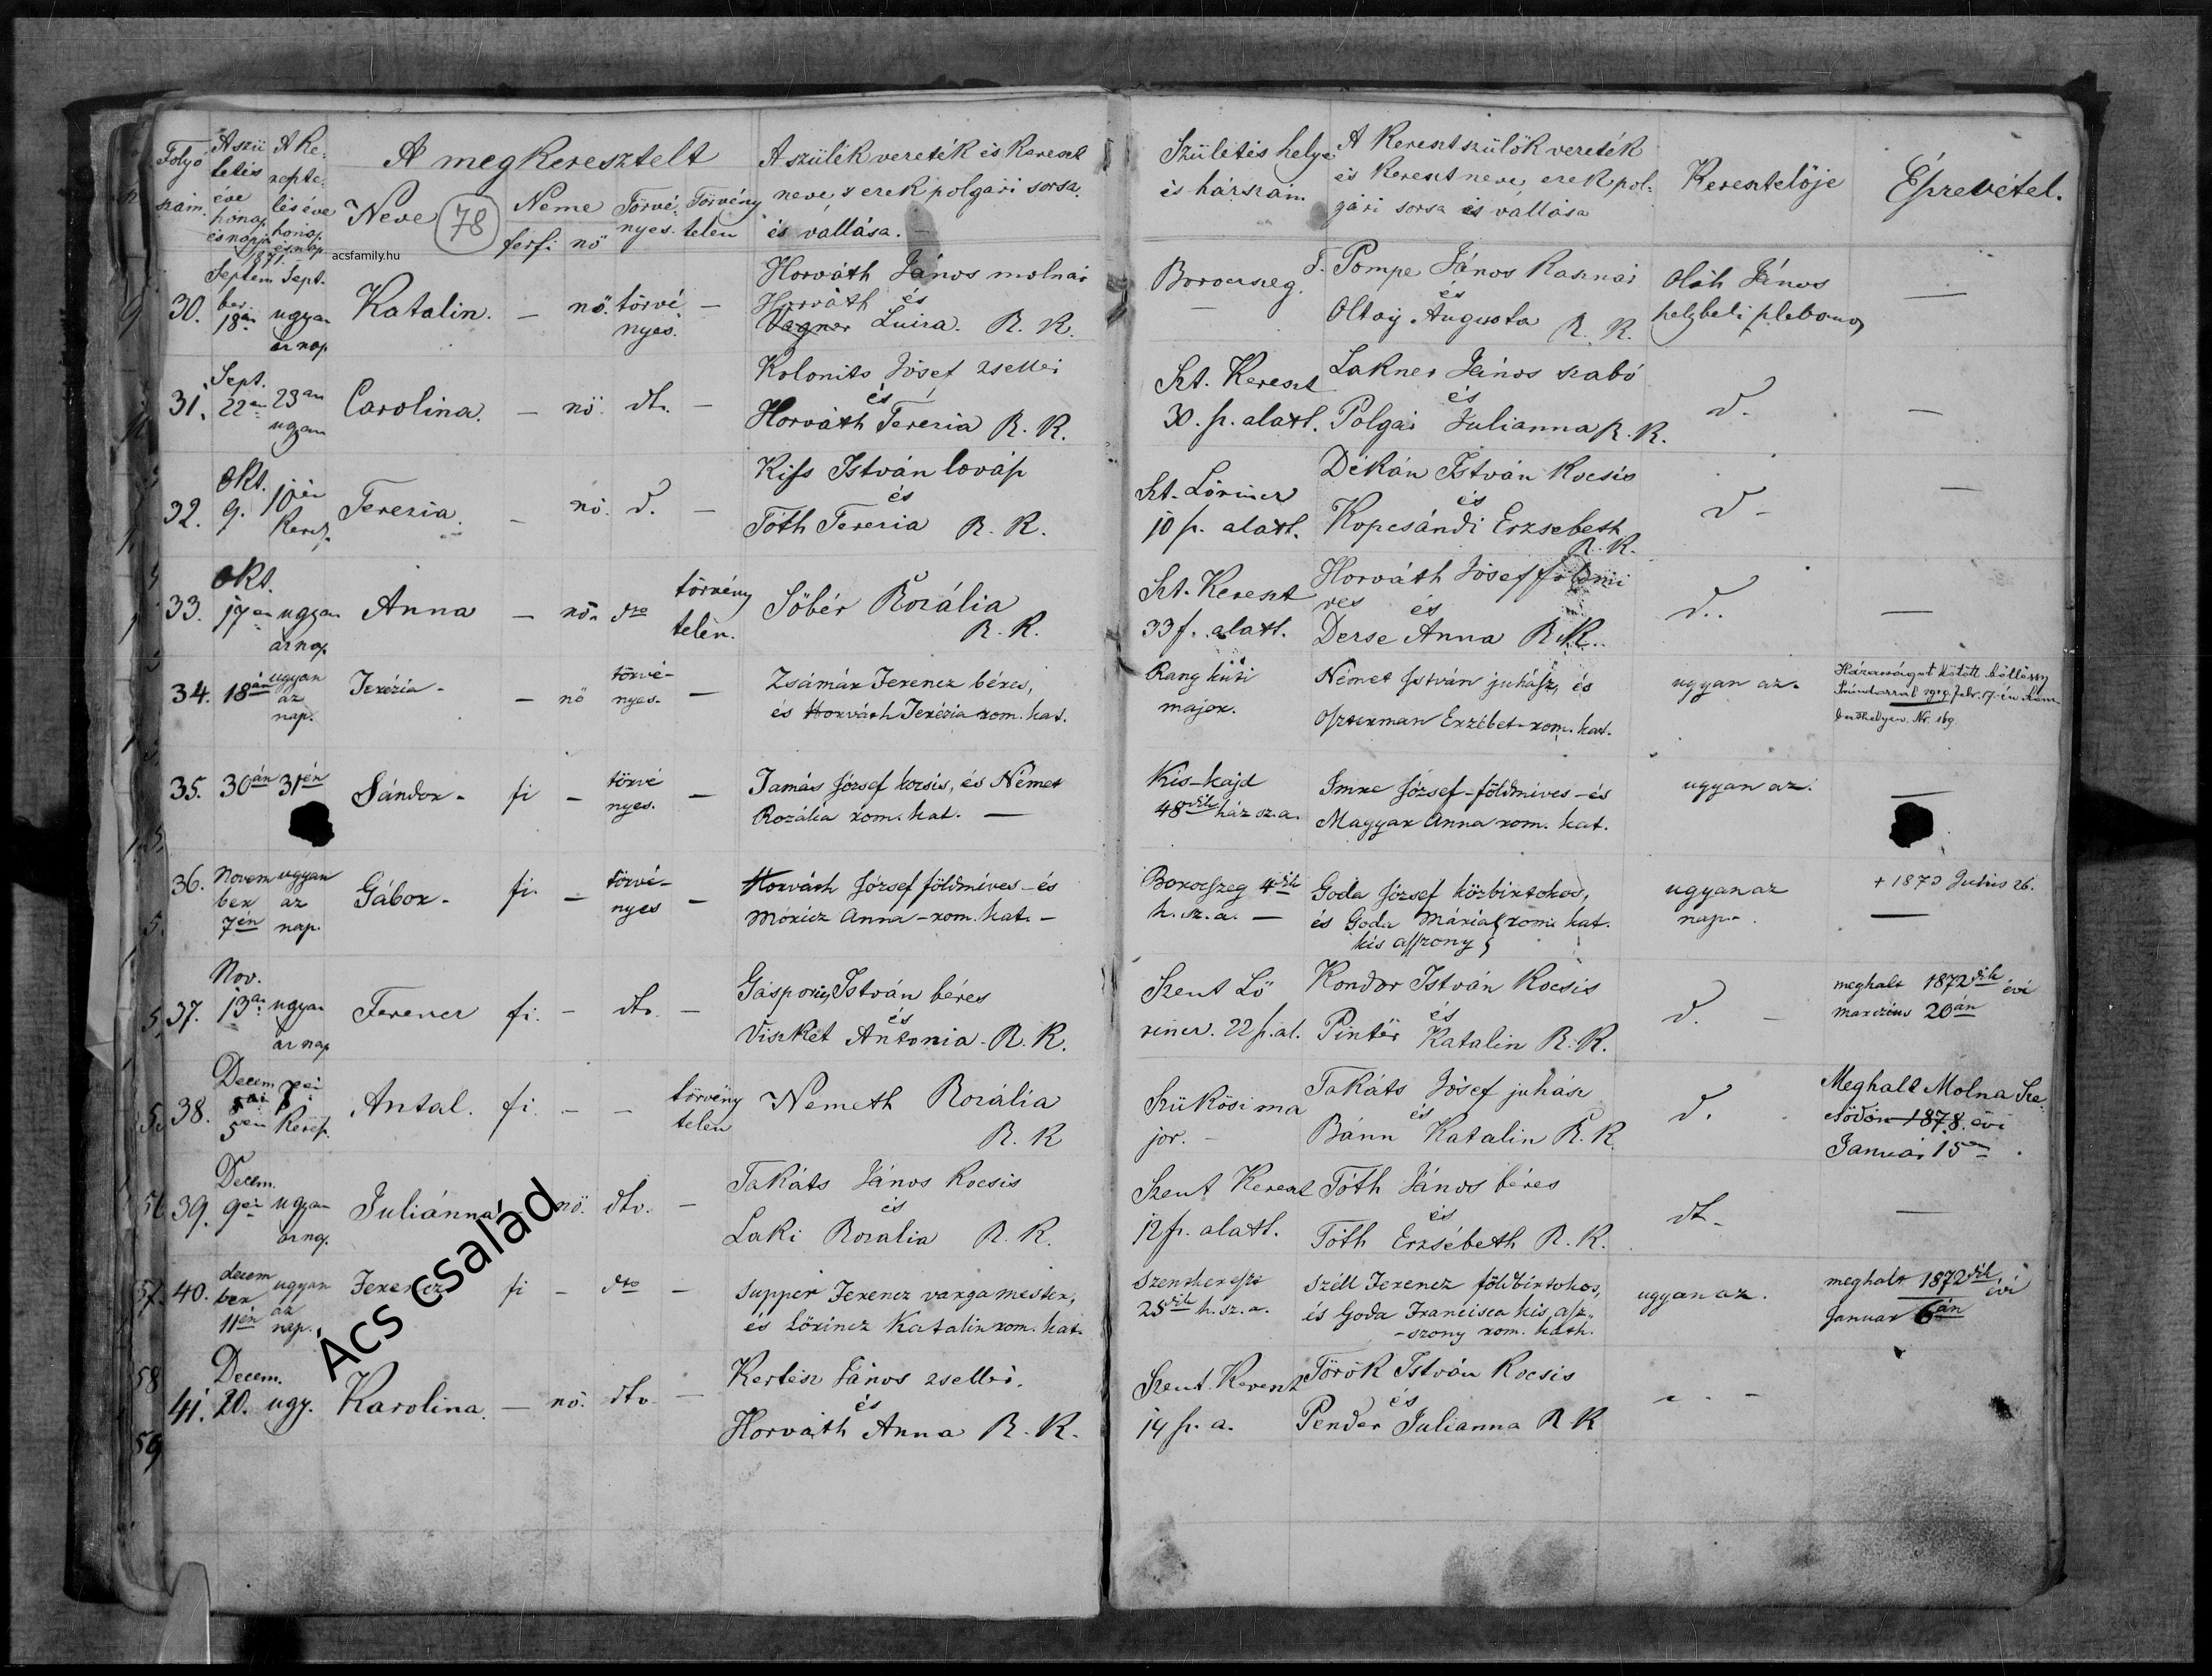 Folyó szám.
A szü letés éve hónap és napja
A Ke: resztelés éve honap és nap
1871.
A megkeresztelt
Neve
78
Neme
férfi nö
Törvé nyes.
Törvény telen
A szülék vezeték és kereszt
neve, s ezek polgári sorsa
és vallása.
Születés helye
és házszám
A Keresztszülök vezeték
és Keresztneve, ezek pol:
gári sorsa és vallása
Keresztelöje
Észrevétel.
acsfamily.hu
30.
Septem ber. 18án
Sept. ugyan az nap
Katalin. — nö. törvé nyes. —
Horváth János molnár
Horváth és
Vagner Luiza. R. K.
Boroszeg.
T. Pompe János Kasznár
és
Oltay Augusta R. K.
Oláh János
helybeli plebanos
—
31.
Sept. 22én
23an ugyan
Carolina. — nö. dt. —
Kolonits Jósef zsellér
és
Horváth Terezia R. K.
Szt. Kereszt
30. sz. alatt.
Lakner János szabó
és
Polgár Julianna R. K.
d.
—
32.
Okt. 9.
10én Keresz.
Terezia. — nö. d. —
Kiss István lovász
és
Tóth Terezia R. K.
Szt. Lörincz
10 sz. alatt.
Dékán István Kocsis
és
Kopcsándi Erzsebeth
R. K.
d -
—
33.
Okt. 17én
ugyan az nap.
Anna — nö. dto törvény telen.
Söbér Rozália
R. K.
Szt. Kereszt
33 sz. alatt.
Horváth Jósef földmi
ves és
Derse Anna R. K.
d..
—
34. 18án
ugyan az nap.
Terézia - — nö törvé- nyes. —
Zsámár Ferencz béres,
és Horváth Terézia rom. kat.
Rang küti
major.
Német István juhász, és
Oszterman Erzébet - rom. kat.
ugyan az.
Házasságot kötött Köllössy
Sándorral 1919. Febr. 17-én Kem
Nr. 169.
35. 30án 31én
Sándor - fi — törvé nyes. —
Tamás József kocsis, és Német
Rozália rom. kat. —
Kis-kajd
48dik ház sz.a.
Imre József - földmives - és
Magyar Anna rom. kat.
ugyan az.
—
36. Novem ber 7én
ugyan az nap.
Gábor - fi. — törvé- nyes —
Horváth József földmíves - és
Móricz Anna - rom. kat. -
Boroszeg 4dik
h. sz. a. —
Goda József közbirtokos,
és Goda Mária rom. kat.
kis asszony
ugyan az
nap -
+ 1873 Julius 26.
—
37. Nov. 13án
ugyan az nap
Ferencz fi. - dto. -
Gáspár István béres
és
Viszkét Antonia - R. K.
Szent Lö
rincz. 22 sz. al.
Kondor István Kocsis
és
Pintér Katalin R. K.
d. -
meghalt 1872dik évi
március 20án
38. Decem 5én
Keresz.
Antal. fi. - - törvény telen
Nemeth Rozália
R. K
Szükösi ma
jor. -
Takáts Jósef juhász
és
Bánn Katalin R. K.
d.
Meghalt Molna Sze-
csödön 1878. évi
Januái 15én
39. Decem. 9én
ugyan az nap.
Juliánna - nö. dto. -
Takáts János Kocsis
és
Laki Rozalia R. K.
Szent Kereszt
12 sz. alatt.
Tóth János béres
és
Tóth Erzsébeth R. K.
dt -
—
40. decem ber 11én
ugyan az nap.
Ferencz fi - dto -
Suppér Ferencz varga mester,
és Lörincz Katalin rom. kat.
Szentkereszt
25dik h. sz. a.
Széll Ferencz földbirtokos,
és Goda Francisca kis asz.
-szony rom. kath.
ugyan az.
meghalt 1872dik évi
Januar 6án
41. Decem. 20. ugy.
Karolina. — nö. dto —
Kertész János zsellér.
és
Horváth Anna R. K.
Szent. Kereszt
14 sz. a.
Török István Kocsis
és
Pender Julianna R K
Ács család